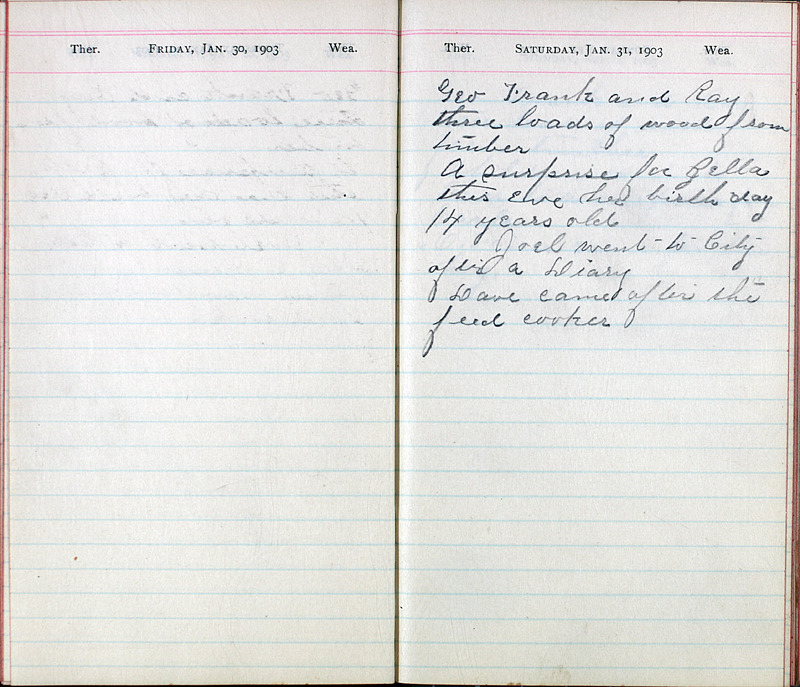 Ther. FRIDAY, JAN. 30, 1903 Wea.
Ther. SATURDAY, JAN. 31, 1903 Wea.
Geo Frank and Ray
three loads of wood from
timber
A surprise for Bella
this Eve her birth day
14 years old
Joel went to City
after a Diary
Dave came after the
feed cooker